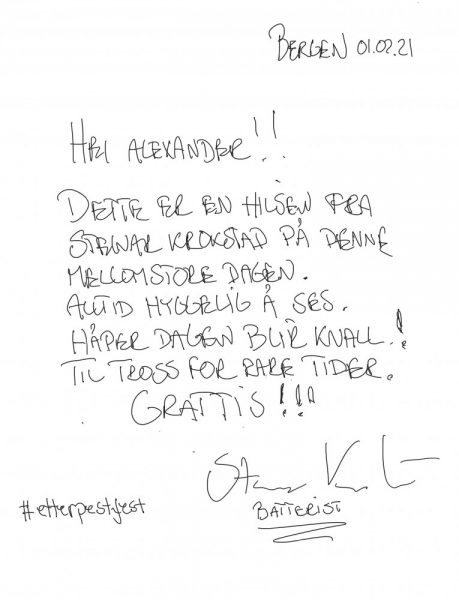 BERGEN 01.02.21
HEI ALEXANDER!!
DETTE ER EN HILSEN FRA
STEINAR KROKSTAD PÅ DENNE
MELLOMSTORE DAGEN.
ALLTID HYGGELIG Å SES.
HÅPER DAGEN BLIR KNALL!
TIL TROSS FOR RARE TIDER.
GRATTIS!!!
BATTERIST
#etterpestfest